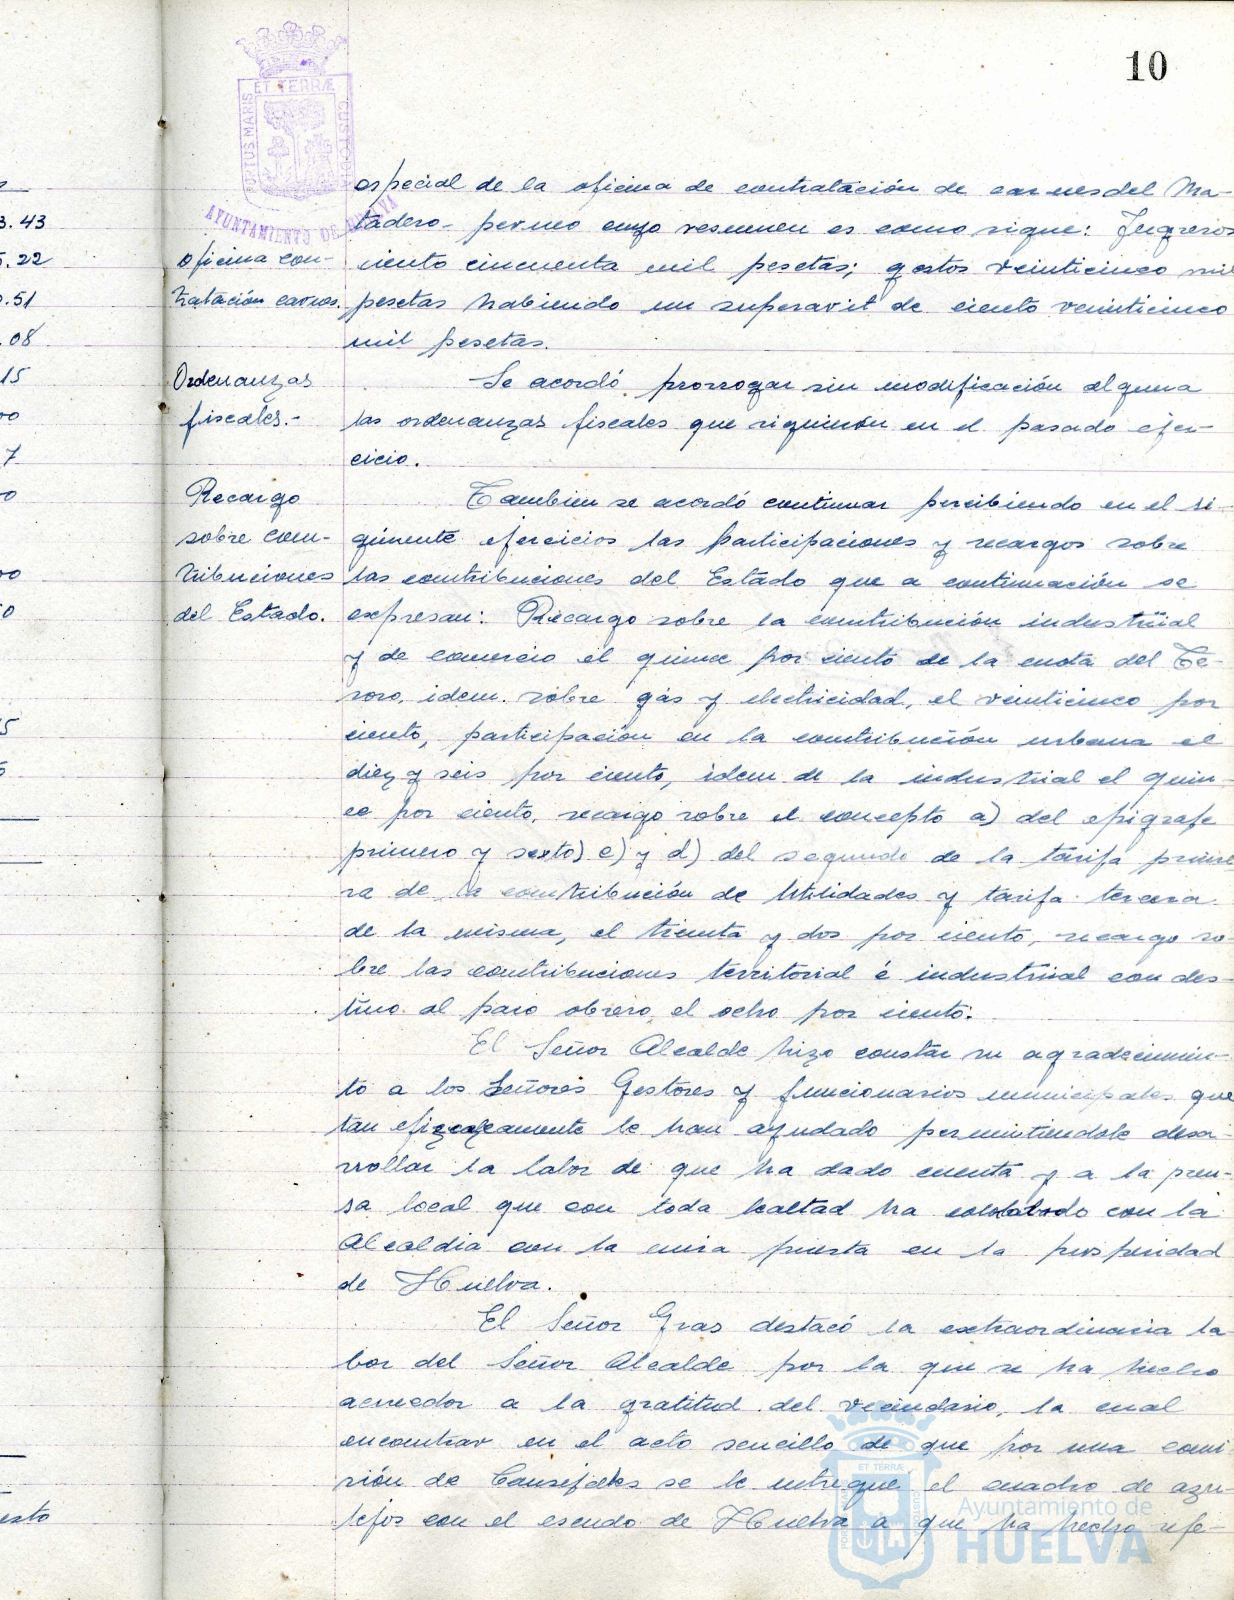 10
PORTUS MARIS ET TERRÆ CUSTODIA
AYUNTAMIENTO DE HUELVA
especial de la oficina de contratación de carnes del Ma-
tadero- cuyo resumen es como sigue: Ingresos
oficina con-
ciento cincuenta mil pesetas; gastos veinticinco mil
tratación carnes.
pesetas habiendo un superavit de ciento veinticinco
mil pesetas.
Ordenanzas
fiscales.-
Se acordó prorrogar sin modificación alguna
las ordenanzas fiscales que siguieron en el pasado ejer-
cicio.
Recargo
sobre con-
tribuciones
del Estado.
Tambien se acordó continuar percibiendo en el si-
guiente ejercicios las participaciones y recargos sobre
las contribuciones del Estado que a continuación se
expresan: Recargo sobre la contribución industrial
y de comercio el quince por ciento de la cuota del Te-
soro, idem. sobre gas y electricidad, el veinticinco por
ciento, participación en la contribución urbana el
diez y seis por ciento, idem de la industrial el quin-
ce por ciento, recargo sobre el concepto a) del epigrafe
primero y sexto) c) y d) del segundo de la tarifa prime
ra de la contribución de Utilidades y tarifa tercera
de la misma, el treinta y dos por ciento, recargo so-
bre las contribuciones territorial é industrial con des-
tino al paro obrero, el ocho por ciento.
El Señor Alcalde hizo constar su agradecimien-
to a los Señores Gestores y funcionarios municipales que
tan le han ayudado permitiendole desa-
rrollar la labor de que ha dado cuenta y a la pren-
sa local que con toda lealtad ha con la
Alcaldia con la mira puesta en la prosperidad
de Huelva.
El Señor Gras destacó la extraordinaria la-
bor del Señor Alcalde por la que se ha hecho
acreedor a la gratitud del vecindario, la cual
encontrar en el acto sencillo de que por una comi-
sión de se le entregue el cuadro de azu-
lejos con el escudo de Huelva a que ha hecho refe-
3.43
5.22
.51
.08
15
00
7
0
00
0
5
5
esto
Ayuntamiento de
HUELVA